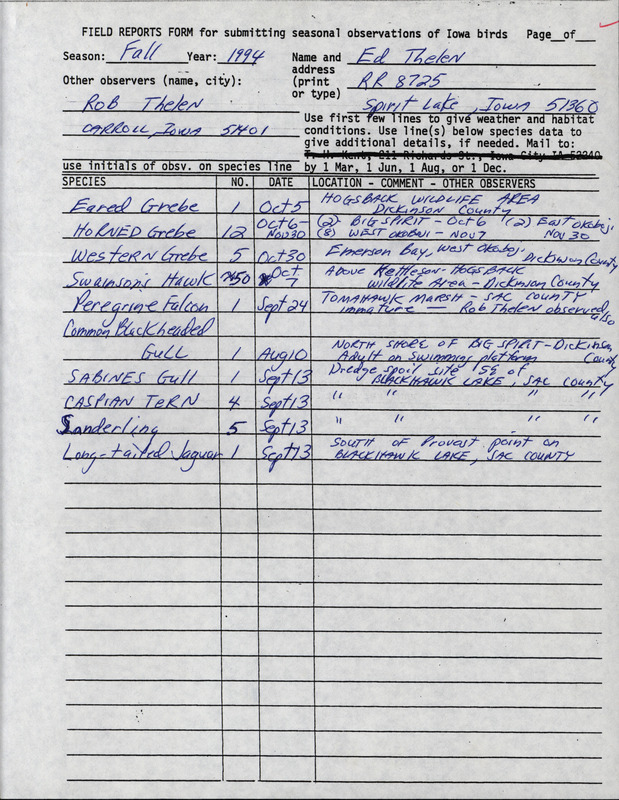 FIELD REPORTS FORM for submitting seasonal observations of Iowa birds Page__of__
Season: Fall Year: 1994 Name and address (print or type) Ed Thelen
RR 8725
Spirit Lake, Iowa 51360
Other observers (name, city):
Rob Thelen
CARROLL, Iowa 51401
Use first few lines to give weather and habitat
conditions. Use line(s) below species data to
give additional details, if needed. Mail to:
T. H. Kent, 211 Richards St., Iowa City IA 52240
use initials of obsv. on species line by 1 Mar, 1 Jun, 1 Aug, or 1 Dec.
SPECIES NO. DATE LOCATION - COMMENT - OTHER OBSERVERS
Eared Grebe 1 Oct 5 HOGSBACK WILDLIFE AREA
Dickinson County
HORNED Grebe 12 Oct 6- Nov 30 (2) BIG SPIRIT - Oct 6 (2) East Okoboji
(8) WEST OKOBOJI - Nov 7 Nov 30
Western Grebe 5 Oct 30 Emerson Bay, West Okoboji,
Dickinson County
Swainson's Hawk ~50 Oct 7 Above Kettleson-HOGSBACK
wildlife Area - Dickinson County
Peregrine Falcon 1 Sept 24 TOMAHAWK MARSH - SAC COUNTY
immature — Rob Thelen observed also
Common Blackheaded
Gull 1 Aug 10 NORTH SHORE OF BIG SPIRIT - Dickinson
Adult on Swimming platform County
SABINES Gull 1 Sept 13 Dredge spoil site SE of
BLACKHAWK LAKE, SAC COUNTY
CASPIAN TERN 4 Sept 13 " " " "
Sanderling 5 Sept 13 " " " "
Long-tailed Jaguar 1 Sept 13 SOUTH OF Provost point on
BLACKHAWK LAKE, SAC COUNTY